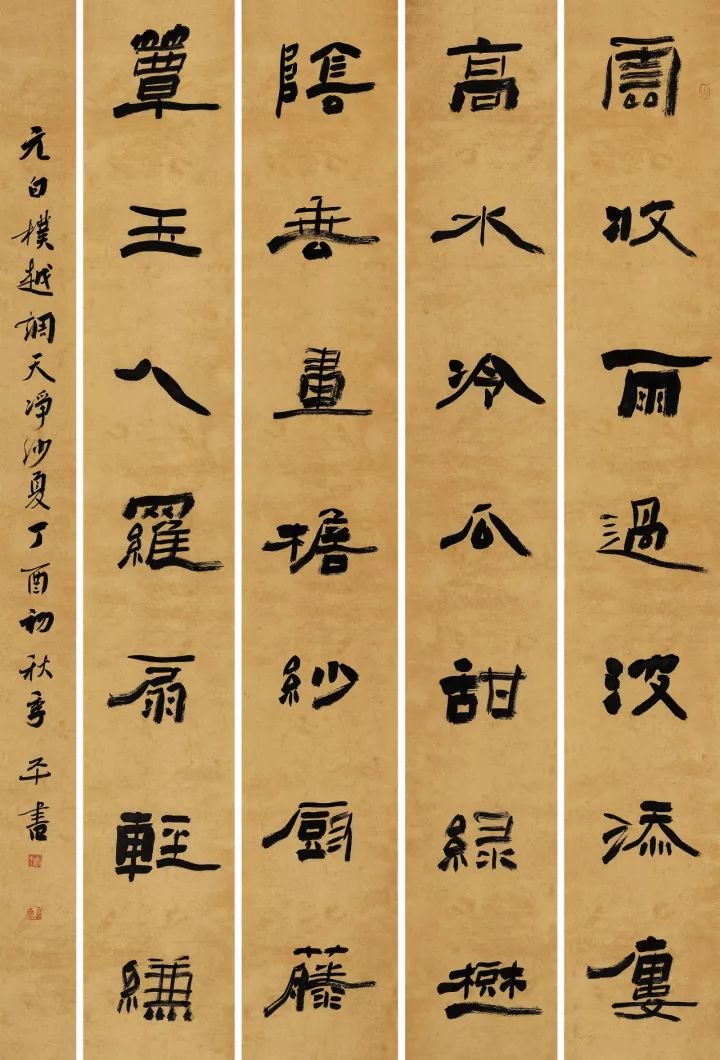 雲收雨過波添廔
高水冷瓜甜綠樹
陰垂畫檐紗厨藤
簟玉人羅扇輕縑
元白樸越調天淨沙夏丁酉初秋平書